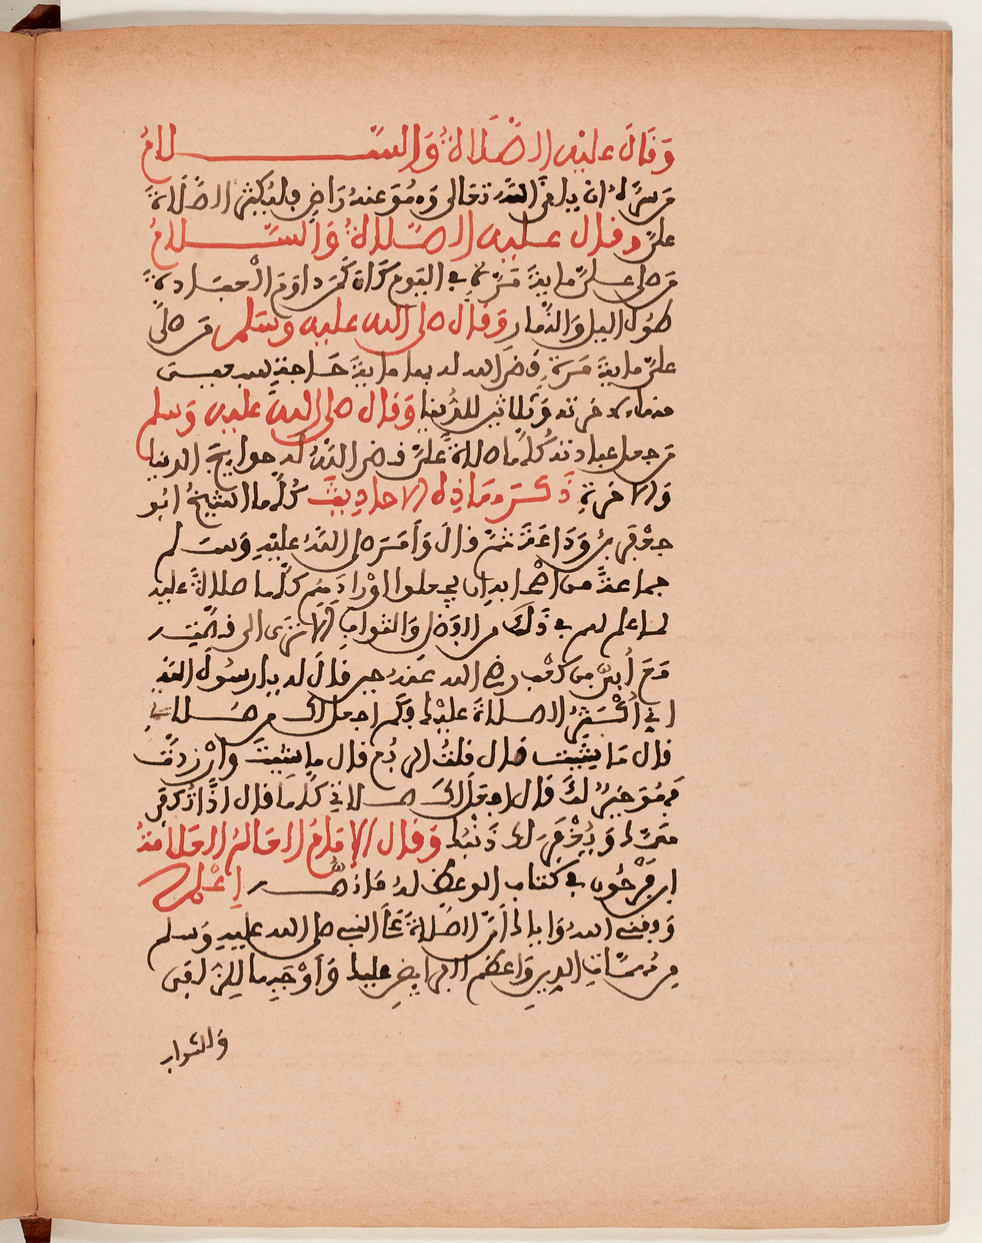 وَقَالَ عَلَيْهِ الصَّلَاةُ وَالسَّلَامُ
مَن سَرَّهُ أن يلقى الله تعالى وَهُوَ عنهُ رَاضٍ فليُكثِر الصَّلَاةَ
عليَّ وقال عليه الصلاةُ وَالسَّلَامُ
من صلى عليَّ مايةَ مَرَّةٍ في اليوم كَانَ كَمَن دَاوَمَ الْعبادةَ
طُول اليل وَالنَّهار وَقَالَ صلى الله عليه وسَلم مَن صلَّى
عليَّ ماية مَرَةٍ قضى الله له بها مايةَ حَاجةٍ سبعين
منها لاخرته وَثلاثين للدُّنيا وَقال صلى الله عليه وَسلم
من جعل عبادته كُلَّها صلاةً عليَّ قضى اللَّهُ له حوايجَ الدنيا
وَالاخرةِ ذَكَرَ هَاذِهِ الاحاديثَ كُلَّها الشيخُ ابُو
جعْفَر بن وَدَاعَةَ ثمَّ قالَ وَأمَرَ صلى اللهُ عليْهِ وَسَلم
جماعةً من اصحابه ان يجعلوا اوْرادَهُم كلَّها صلاةً عليه
لما علم لهم في ذَلكَ من الفضل وَالثواب ألا ترى الى قصَّتِه
مَعَ أُبيّ بن كعْب رضي الله عَنه حين قالَ له يا رسُولَ الله
اني أُكْثِرُ الصلاةَ عليْك وكَم اجعل لك من صَلاتي
قال مَا شيت قال قلتُ الرُبُع قال ما شيتَ وَإن زدتَّ
فهُوَ خيْرٌ لكَ قال اجعل لكَ صلاتي كلَّهَا قال اذًا تُكفَى
همَّك وَيُغْفَرَ لك ذَنْبُك وَقال الإمَامُ العَالمُ العَلامَةُ
ابن فَرْحُون في كتاب الوعظ له مَا نصُّه إعْلم
وَفقني الله وَاياك أنَّ الصَّلاةَ عَلى النبي صلى الله عليهِ وَسلم
من مُهمَّاتِ الدين وَاعظم الفرايضِ عليك وَأَوْجَبها للزلفى
وَالثواب